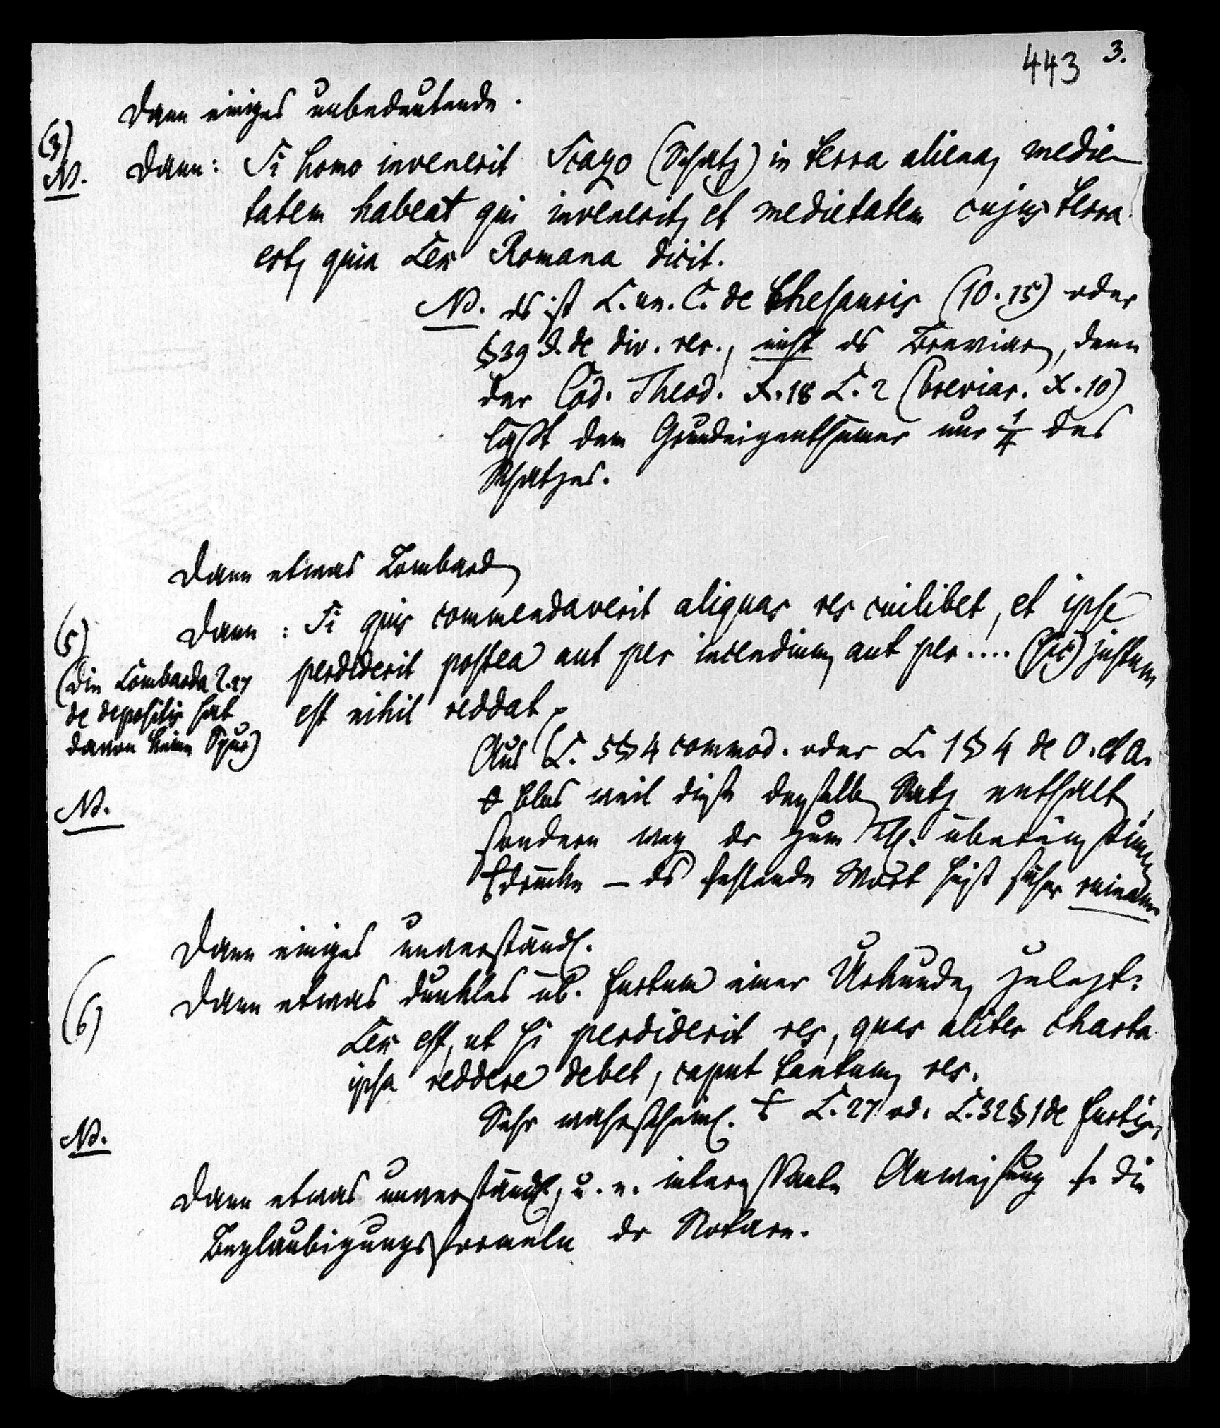 443 3.
Dann einiges unbedeutende.
(3)
NB. Dann: Si homo invenerit Scazo (Schatz) in terra aliena, medie-
tatem habeat qui invenerit, et medietatem cujus terra
est, quia Lex Romana dicit.
NB. ds ist L. un. C. de thesauris (10.15) oder
§39 J. de div. rer., nicht ds Breviar, denn
der Cod. Theod. X.18 L.2 (breviar. X.10)
läßt dem Grundeigenthümer nur ¼ des
Schatzes.
Dann etwas Lombard
(5) Dann: Si quis commendaverit aliquas res cuilibet, et ipse
(Die Lombarda 2.27 perdiderit postea aut per incendium, aut per .... (sic) justum
de depositis hat est nihil reddat.
davon keine Spur)
Aus L. 5 § 4 commod. oder L. 1 § 4 de O. et A.
NB. blos weil diese denselben Satz enthält,
sondern weg dr zum Th. übereinstimm
Ausdrücke – ds fehlende Wort heißt sicher ruinam.
Dann einiges unverständl.
(6) Dann etwas dunkles üb. furtum einer Urkunde, zuletzt:
Lex est, ut si perdiderit res, quas aliter charta
ipsa reddere debet, caput tantum res.
NB. Sehr wahrscheinl. L. 27 od. L. 32 § 1 de furtis,
Dann etwas unverständl., u. e. interessante Anweisung f. die
Beglaubigungsformeln dr Notare.